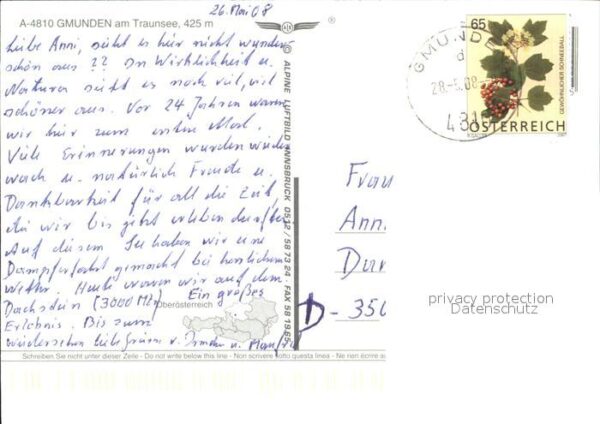 26. Mai 08
A-4810 GMUNDEN am Traunsee, 425 m
Liebe Anni, sieht es hier nicht wunder-
schön aus ?? In Wirklichkeit u.
Natura sieht es noch viel, viel
schöner aus. Vor 24 Jahren waren
wir hier zum ersten Mal.
Viele Erinnerungen wurden wieder
wach u. natürlich Freude u.
Dankbarkeit für all die Zeit,
die wir bis jetzt erleben durften.
Auf diesem See haben wir eine
Dampferfahrt gemacht bei herrlichem
Wetter. Heute waren wir auf dem
Dachstein (3000 Mt) Ein großes
Erlebnis. Bis zum
Wiedersehen liebe Grüsse v. u.
Oberösterreich
Schreiben Sie nicht unter dieser Zeile - Do not write below this line - Non scrivere sotto questa linea - Ne rien écrire au
© ALPINE LUFTBILD INNSBRUCK 0512/587324 · FAX 581985
GMUNDEN
28.-5.08
481
65
GEWÖHNLICHER SCHNEEBALL
ÖSTERREICH
Frau
Ann
D-350
privacy protection
Datenschutz